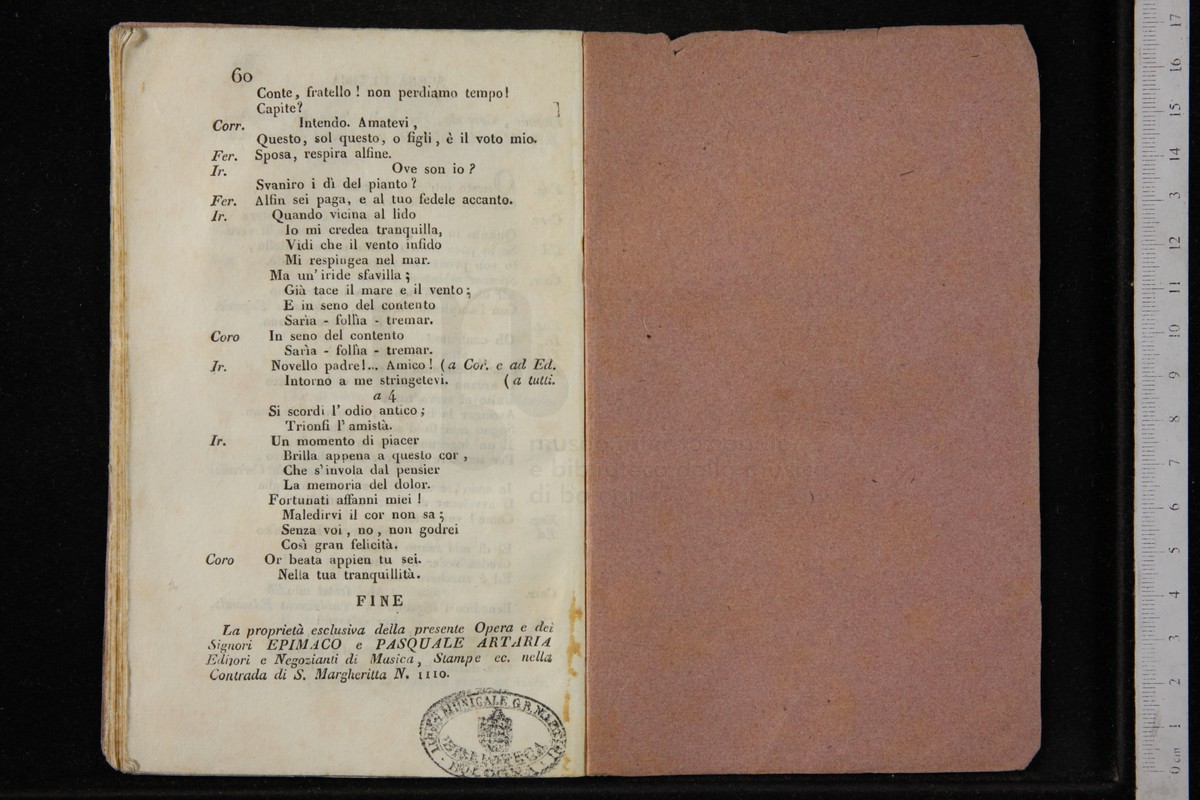 60
Conte, fratello! non perdiamo tempo!
Capite?
Corr. Intendo. Amatevi,
Questo, sol questo, o figli, è il voto mio.
Fer. Sposa, respira alfine.
Ir. Ove son io?
Svaniro i dì del pianto?
Fer. Alfin sei paga, e al tuo fedele accanto.
Ir. Quando vicina al lido
Io mi credea tranquilla,
Vidi che il vento infido
Mi respingea nel mar.
Ma un' iride sfavilla;
Già tace il mare e il vento;
E in seno del contento
Sarìa - follìa - tremar.
Coro In seno del contento
Sarìa - follìa - tremar.
Ir. Novello padre!... Amico! (a Cor. e ad Ed.
Intorno a me stringetevi. (a tutti.
a 4
Si scordi l' odio antico;
Trionfi l' amistà.
Ir. Un momento di piacer
Brilla appena a questo cor,
Che s' invola dal pensier
La memoria del dolor.
Fortunati affanni miei!
Maledirvi il cor non sa;
Senza voi, no, non godrei
Così gran felicità.
Coro Or beata appien tu sei.
Nella tua tranquillità.
FINE
La proprietà esclusiva della presente Opera e dei
Signori EPIMACO e PASQUALE ARTARIA
Editori e Negozianti di Musica, Stampe ec. nella
Contrada di S. Margheritta N. 1110.
BIBLIOTECA
BOLOGNA
museo
e biblioteca
di bologna
0 cm 1 2 3 4 5 6 7 8 9 10 11 12 13 14 15 16 17